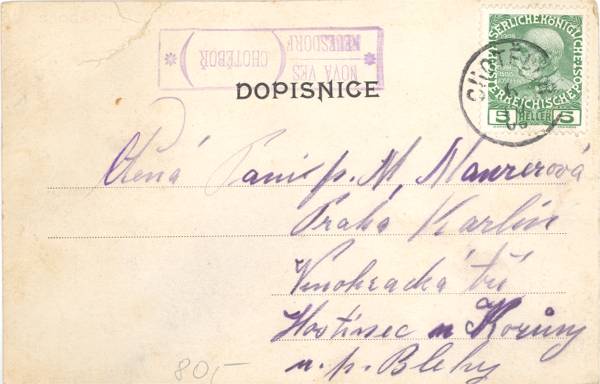 NOVA VES
NEUESDORF
(CHOTĚBOŘ)
KAISERLICHE KÖNIGLICHE
ÖSTERREICHISCHE POST
5 HELLER 5
CHOTĚBOŘ
DOPISNICE
Ctená Paní p. M. Maurerová
Praha Karlín
Vinohradská tř.
Hostinec u Koruny
u. p. Blehy
80,-